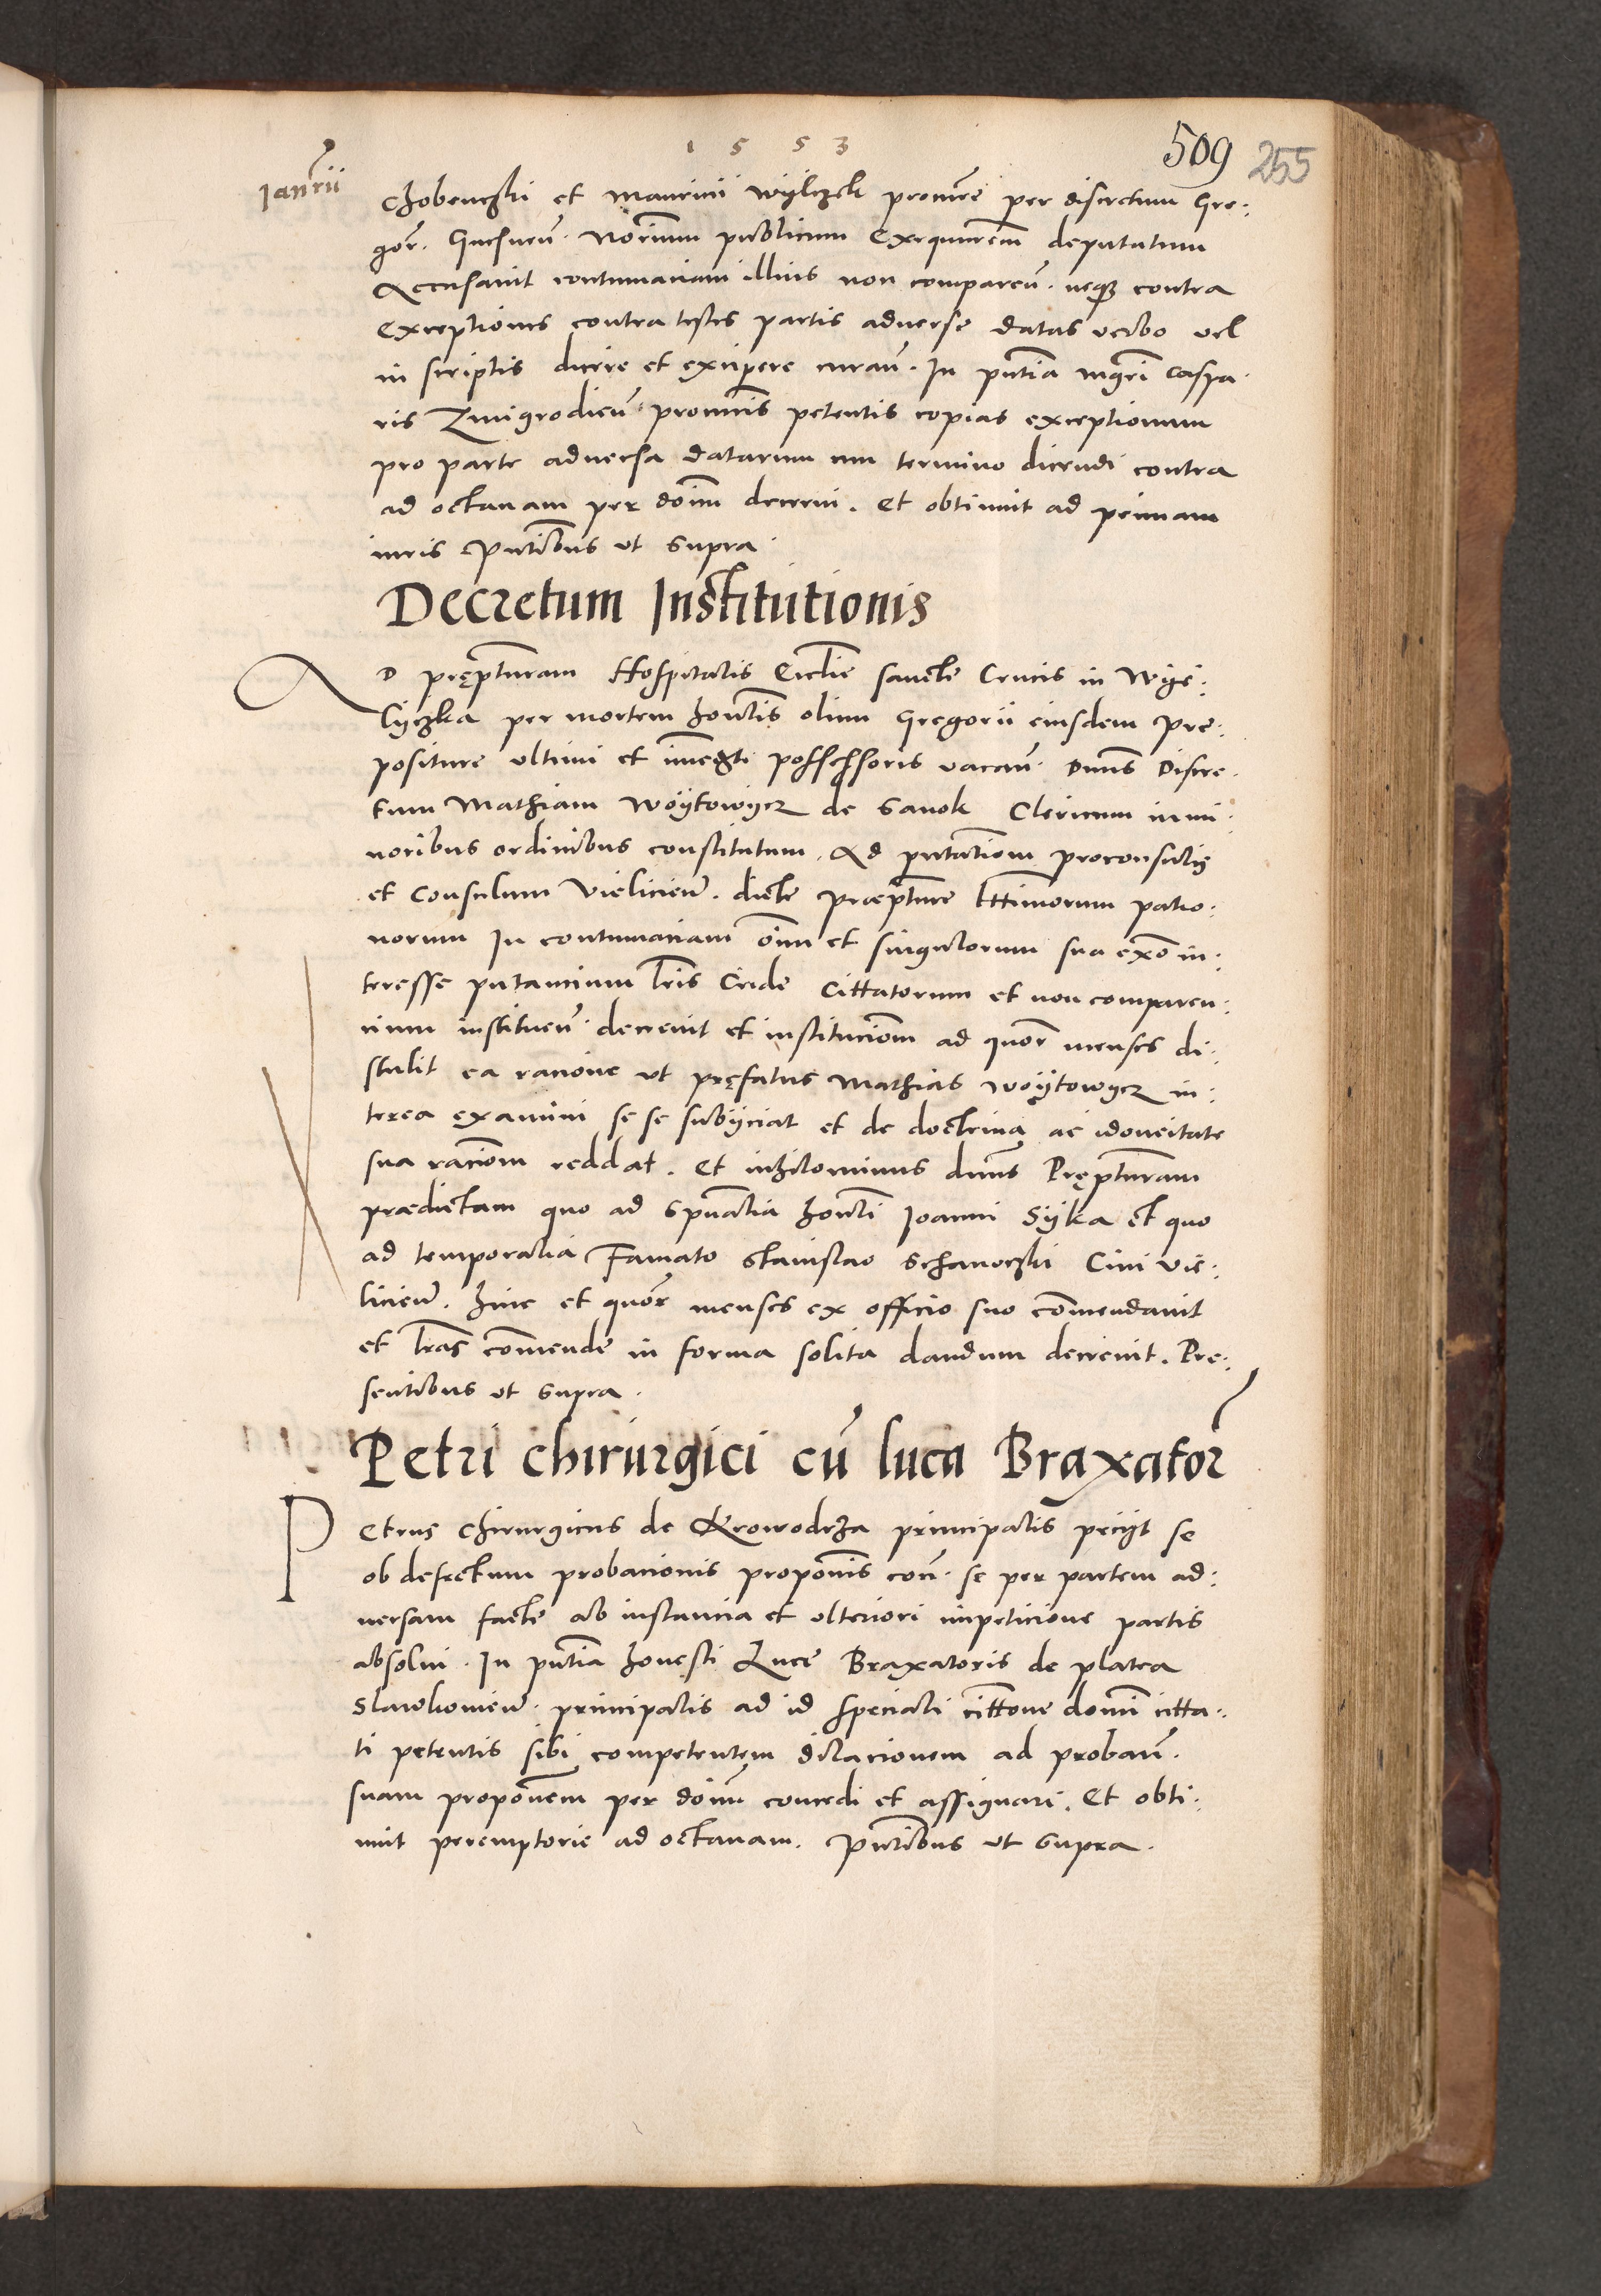 1553
509 255
Ianrii
Chobenczki et Mauricii Wylczek procure per discretum Gre:
gor. Gnesnen. Norium publicum Exequutorem deputatum
Accusavit contumaciam illius non comparen. neque contra
Exceptiones contra testes partis adverse datas verbo vel
in scriptis dicere et excipere curan. In pntia mgri Caspa.
ris Zmigrodien procuris petentis copias exceptionum
pro parte adversa datarum cum termino dicendi contra
ad octavam per doim decerni. Et obtinuit ad primam
iuris Pntibus ut supra.
Decretum Institutionis
AD pręptturam Hospitalis Ecclie sancte Crucis in Wye:
lyczka per mortem honestis olim Gregorii eiusdem Pre:
positure ultimi et immedti possessoris vacan. Dnus Discre.
tum Mathiam Woytowycz de Sanok Clericum in mi:
noribus ordinibus constitutum. Ad pntationem proconsulis
et Consulum Vielicien. dicte Præpture lttimorum patro:
norum In contumaciam oim et singulorum sua exo in:
teresse putancium lris Cride Cittatorum et non comparen:
cium instituen. decrevit et instituciom ad quor menses di:
stulit ea racione ut pręfatus Mathias Woytowycz in:
terea examini se se subyciat et de doctrina ac idoneitate
sua raciom reddat. Et nihilominus dnus Pręptturam
prædictam quo ad spualia honti Ioanni Syka et quo
ad temporalia Famato Stanislao Schanoczki Civi Vie:
licien. hinc et quor menses ex officio suo comendavit
et lras comende in forma solita dandum decrevit. Pre:
sentibus ut supra.
Petri chirurgici cu luca Braxator
Petrus Chirurgicus de Krowodrza principalis peciyt se
ob defectum probacionis proponis con. se per partem ad:
versam facte ab instancia et ulteriori impeticione partis
absolvi. In pntia honesti Luce Braxatoris de platea
Slawkovien. principalis ad id speciali cittone domi citta:
ti petentis sibi competentem dilacionem ad proban.
suam proponem per doim concedi et assignari. Et obti:
nuit peremptorie ad octavam. Pntibus ut supra.